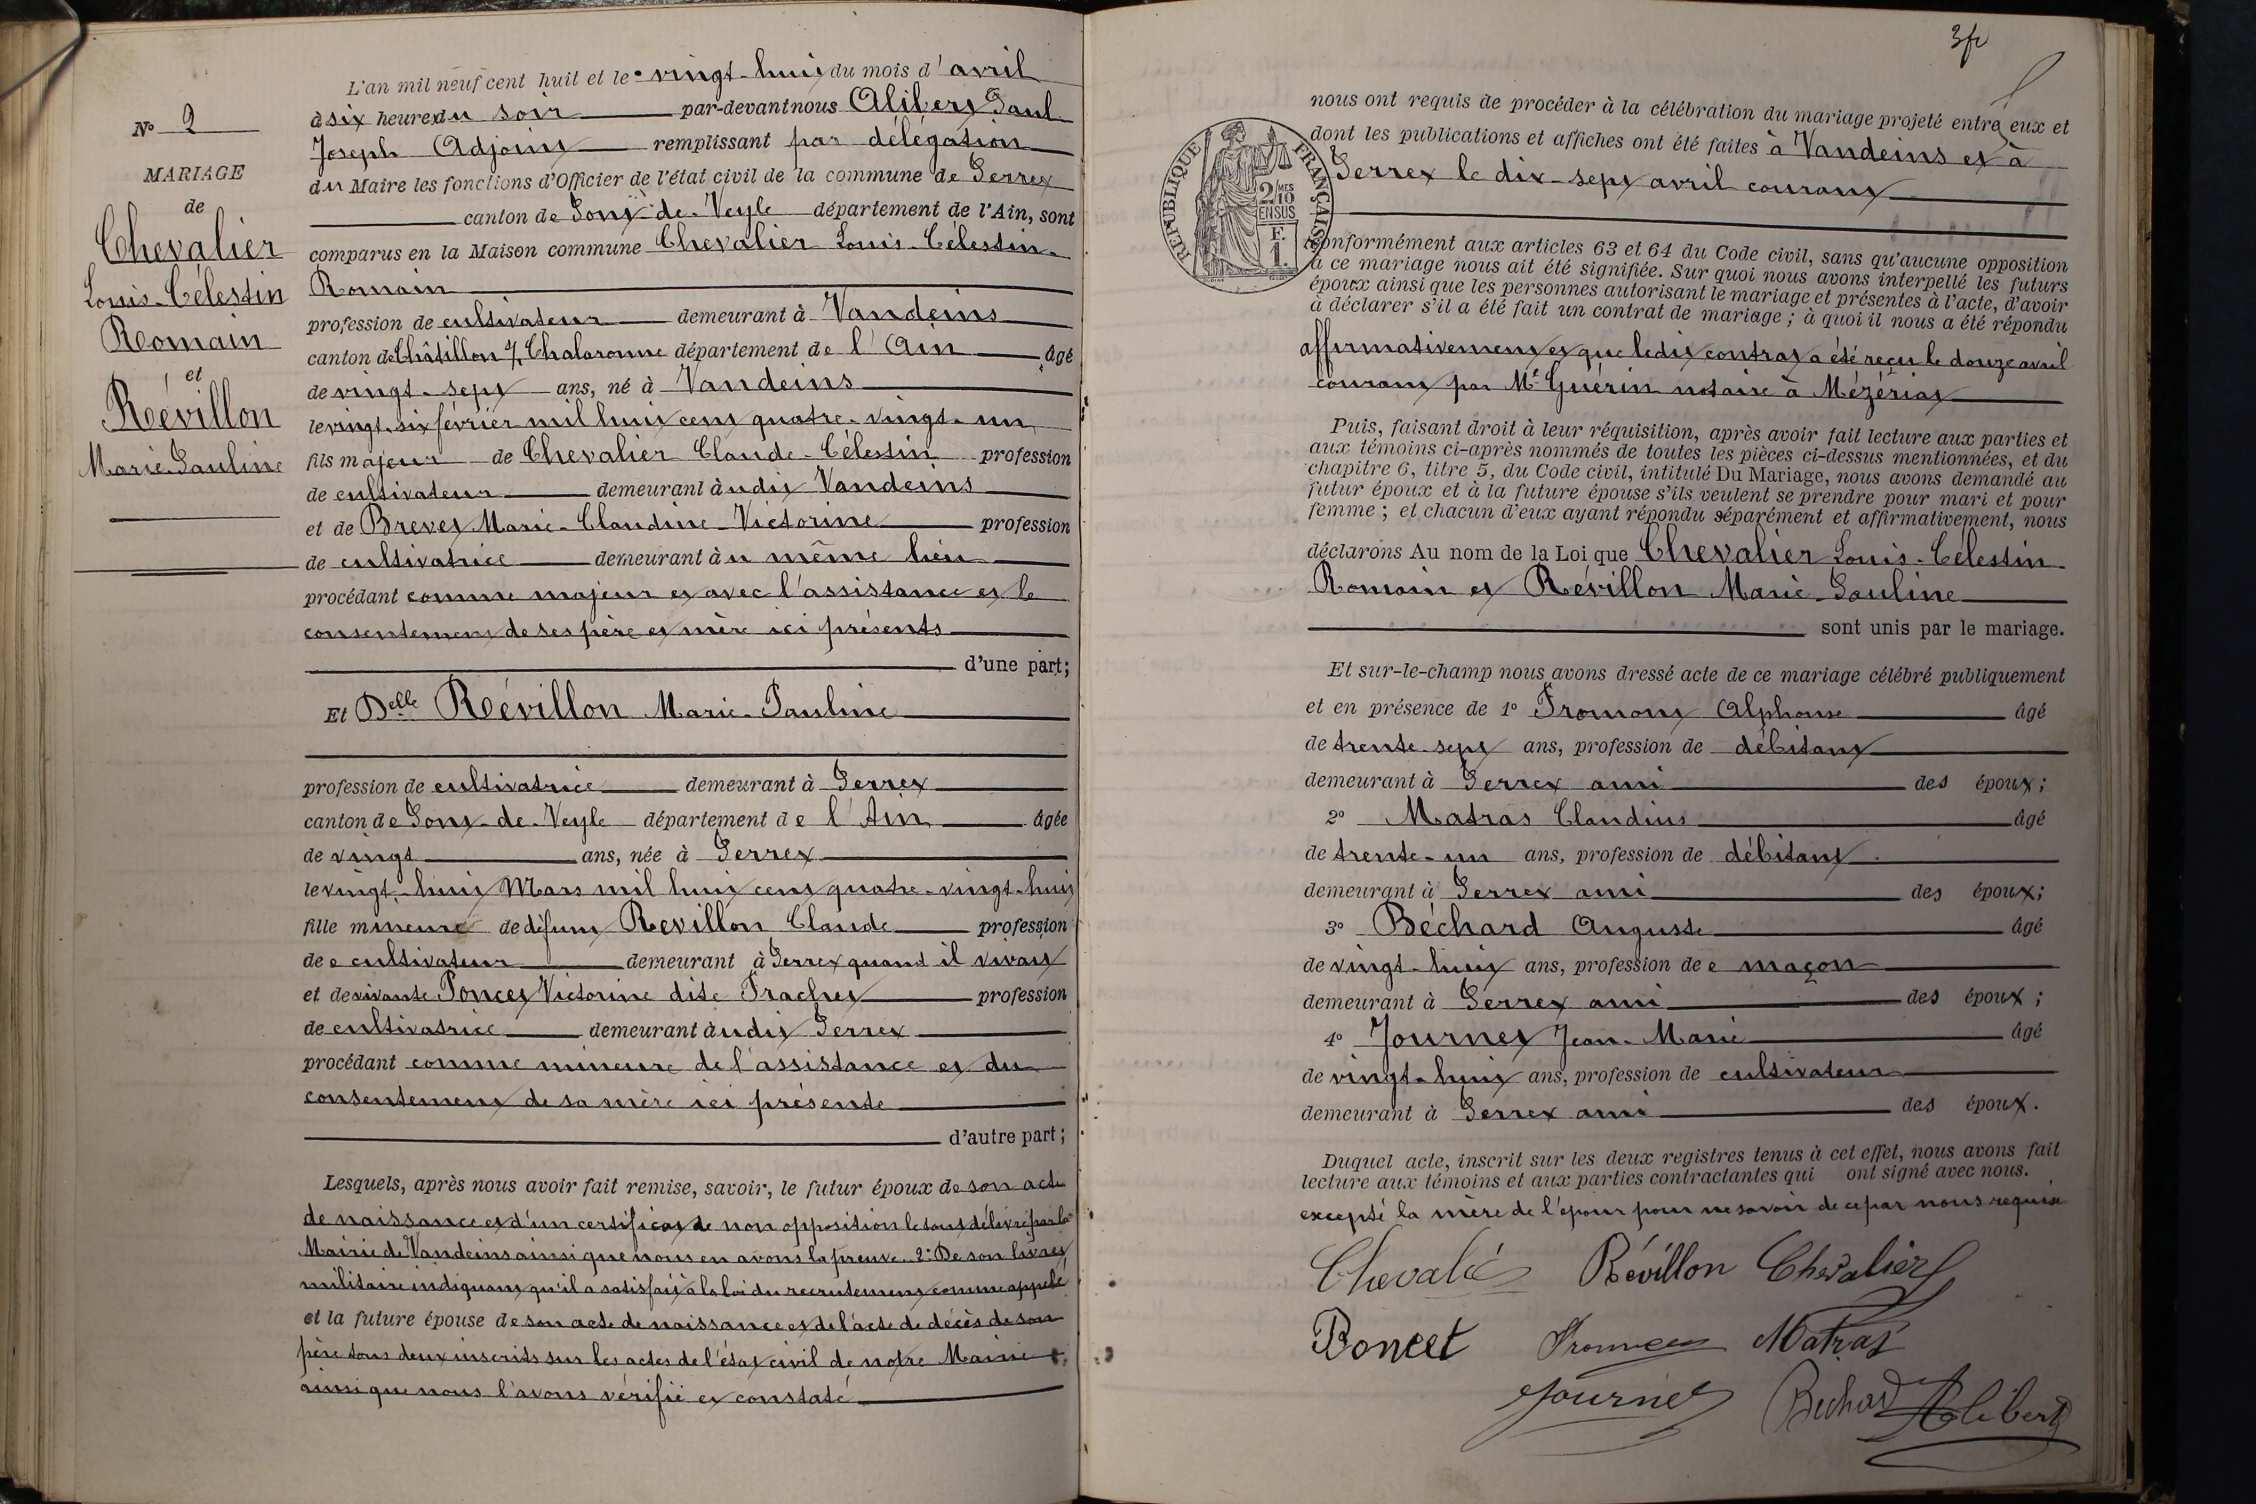 L'an mil neuf cent huit et le vingt-huit du mois d'avril
à six heures du soir par-devant nous Alibert Paul
Joseph Adjoint remplissant par délégation
du Maire les fonctions d'Officier de l'état civil de la commune de Perrex
canton de Pont-de-Veyle département de l'Ain, sont
comparus en la Maison commune Chevalier Louis-Célestin-
Romain
profession de cultivateur demeurant à Vandeins
canton de Châtillon s/ Chalaronne département de l'Ain âgé
de vingt-sept ans, né à Vandeins
le vingt-six février mil huit cent quatre-vingt-un
fils majeur de Chevalier Claude-Célestin profession
de cultivateur demeurant à udit Vandeins
et de Brevet Marie-Claudine-Victorine profession
de cultivatrice demeurant à u même lieu
procédant comme majeur et avec l'assistance et le
consentement de ses père et mère ici présents
d'une part;
Et Delle Révillon Marie-Pauline
profession de cultivatrice demeurant à Perrex
canton de Pont-de-Veyle département de l'Ain âgée
de vingt ans, née à Perrex
le vingt-huit Mars mil huit cent quatre-vingt-huit
fille mineure de défunt Revillon Claude profession
de cultivateur demeurant à Perrex quand il vivait
et de vivante Poncet Victorine dite Trachet profession
de cultivatrice demeurant à udit Perrex
procédant comme mineure de l'assistance et du
consentement de sa mère ici présente
d'autre part;
Lesquels, après nous avoir fait remise, savoir, le futur époux de son acte
de naissance et d'un certificat de non opposition le tout délivré par la
Mairie de Vandeins ainsi que nous en avons la preuve. 2° De son livret
militaire indiquant qu'il a satisfait à la loi du recrutement comme appelé
et la future épouse de son acte de naissance et de l'acte de décès de son
père tous deux inscrits sur les actes de l'état civil de notre Mairie
ainsi que nous l'avons vérifié et constaté
No 2
MARIAGE
de
Chevalier
Louis-Célestin
Romain
et
Révillon
Marie-Pauline
3fr
nous ont requis de procéder à la célébration du mariage projeté entre eux et
dont les publications et affiches ont été faites à Vandeins et à
Perrex le dix-sept avril courant
RÉPUBLIQUE FRANÇAISE
2/10 MES
EN SUS
F.
1.
conformément aux articles 63 et 64 du Code civil, sans qu'aucune opposition
à ce mariage nous ait été signifiée. Sur quoi nous avons interpellé les futurs
époux ainsi que les personnes autorisant le mariage et présentes à l'acte, d'avoir
à déclarer s'il a été fait un contrat de mariage; à quoi il nous a été répondu
affirmativement et que ledit contrat a été reçu le douze avril
courant par Me Guérin notaire à Mézériat
Puis, faisant droit à leur réquisition, après avoir fait lecture aux parties et
aux témoins ci-après nommés de toutes les pièces ci-dessus mentionnées, et du
chapitre 6, titre 5, du Code civil, intitulé Du Mariage, nous avons demandé au
futur époux et à la future épouse s'ils veulent se prendre pour mari et pour
femme; et chacun d'eux ayant répondu séparément et affirmativement, nous
déclarons Au nom de la Loi que Chevalier Louis-Célestin-
Romain et Révillon Marie-Pauline
sont unis par le mariage.
Et sur-le-champ nous avons dressé acte de ce mariage célébré publiquement
et en présence de 1° Fromont Alphonse âgé
de trente-sept ans, profession de débitant
demeurant à Perrex ami des époux;
2° Matras Claudius âgé
de trente-un ans, profession de débitant
demeurant à Perrex ami des époux;
3° Béchard Auguste âgé
de vingt-huit ans, profession de maçon
demeurant à Perrex ami des époux;
4° Journet Jean-Marie âgé
de vingt-huit ans, profession de cultivateur
demeurant à Perrex ami des époux.
Duquel acte, inscrit sur les deux registres tenus à cet effet, nous avons fait
lecture aux témoins et aux parties contractantes qui ont signé avec nous.
excepté la mère de l'époux pour ne savoir de ce par nous requise
Chevalié Révillon Chevalier
Poncet Matras
Journet Bechard Alibert